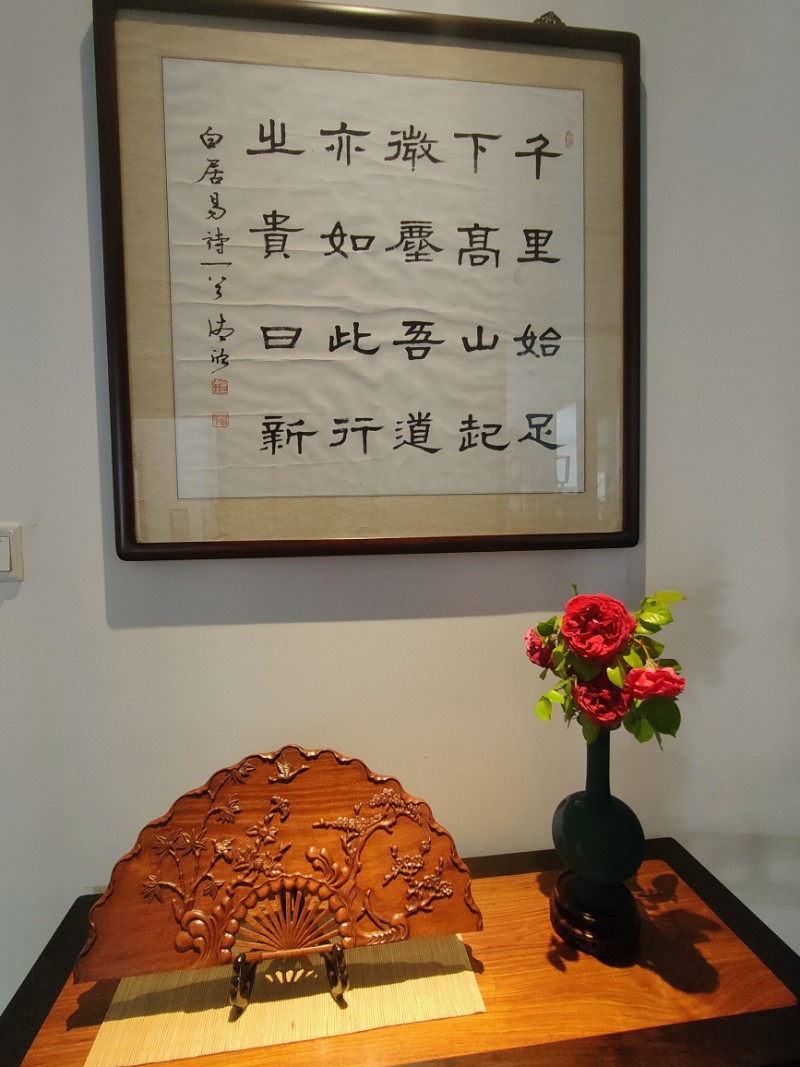 千里始足
下高山起
微塵吾道
亦如此行
之貴日新
白居易诗一首